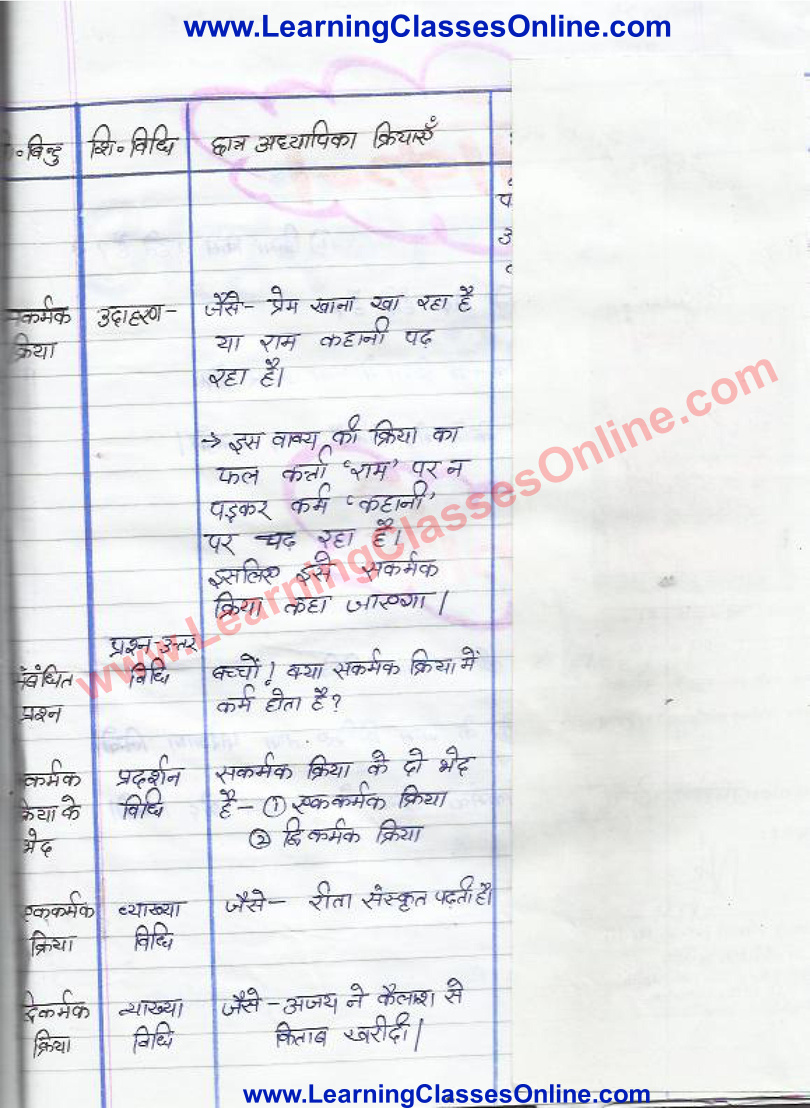 www.LearningClassesOnline.com
बिन्दु शि॰ विधि छात्र अध्यापिका क्रियाएँ
सकर्मक उदाहरण- जैसे- प्रेम खाना खा रहा है
क्रिया या राम कहानी पढ़
रहा है।
→ इस वाक्य की क्रिया का
फल कर्त्ता 'राम' पर न
पड़कर कर्म 'कहानी'
पर चढ़ रहा है।
इसलिए इसे सकर्मक
क्रिया कहा जाएगा।
www.LearningClassesOnline.com
प्रश्न उत्तर
संबंधित विधि बच्चों! क्या सकर्मक क्रिया में
प्रश्न कर्म होता है?
कर्मक प्रदर्शन सकर्मक क्रिया के दो भेद
क्रिया के विधि है- ① एककर्मक क्रिया
भेद ② द्विकर्मक क्रिया
एककर्मक व्याख्या जैसे- रीता संस्कृत पढ़ती है।
क्रिया विधि
द्विकर्मक व्याख्या जैसे- अजय ने कैलाश से
क्रिया विधि किताब खरीदी।
www.LearningClassesOnline.com